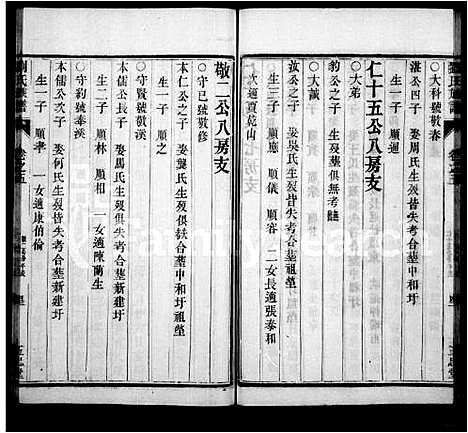 ○大科號敬春
湛公四子　娶周氏生歿皆失考合葬中和圩
生一子　順運
仁十五公八房支
○大弟
豹公之子　娶吳氏生歿葬俱無考
○大誠
生三子　順應　順儀　順容　二女長適張泰和
次適夏乾山
敬二公八房支
○守已號敬修
本仁公之子　娶龔氏生歿俱失考合葬中和圩祖塋
生一子　順之
○守賢號敬溪
本儒公長子　娶周氏生歿皆失考合葬新建圩
生二子　順林　順相　一女適陳蘭生
○守約號泰溪
本儒公次子　娶何氏生歿皆失考合葬新建圩
生一子　順孝　一女適康伯倫